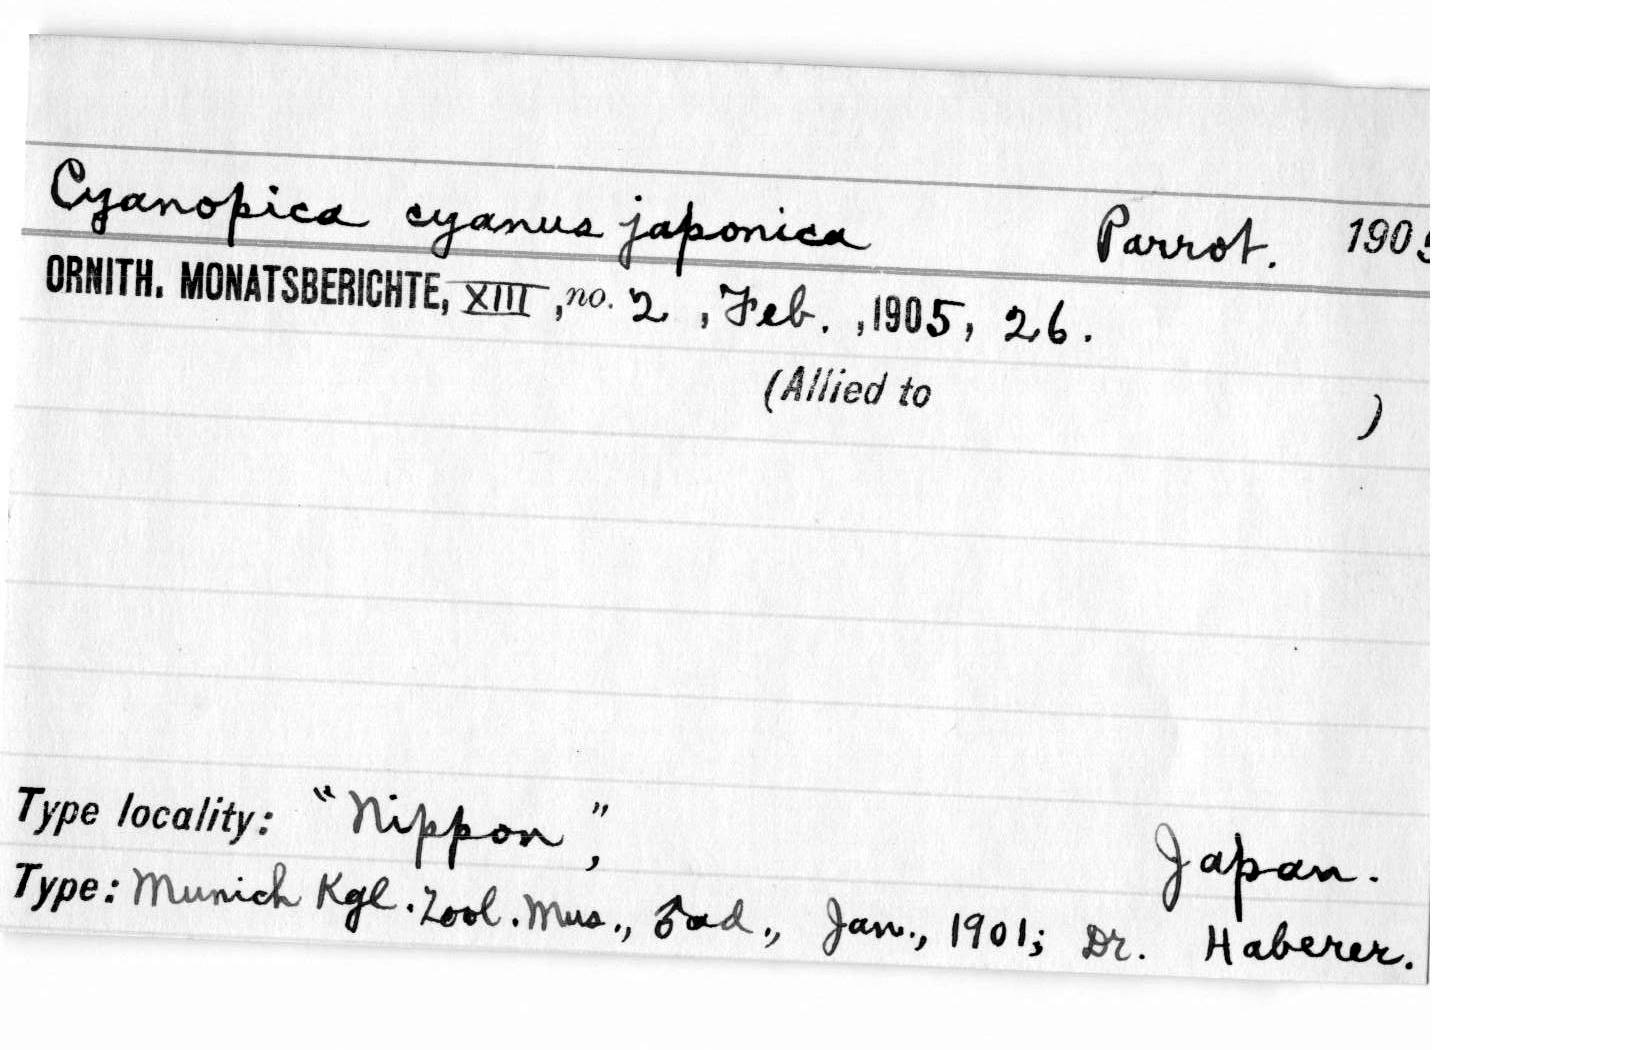 Cyanopica cyanus japonica Parrot. 1905
ORNITH. MONATSBERICHTE, XIII, no. 2, Feb., 1905, 26.
(Allied to )
Type locality: "Nippon", Japan.
Type: Munich Kgl. Zool. Mus., ♂ ad., Jan., 1901; Dr. Haberer.